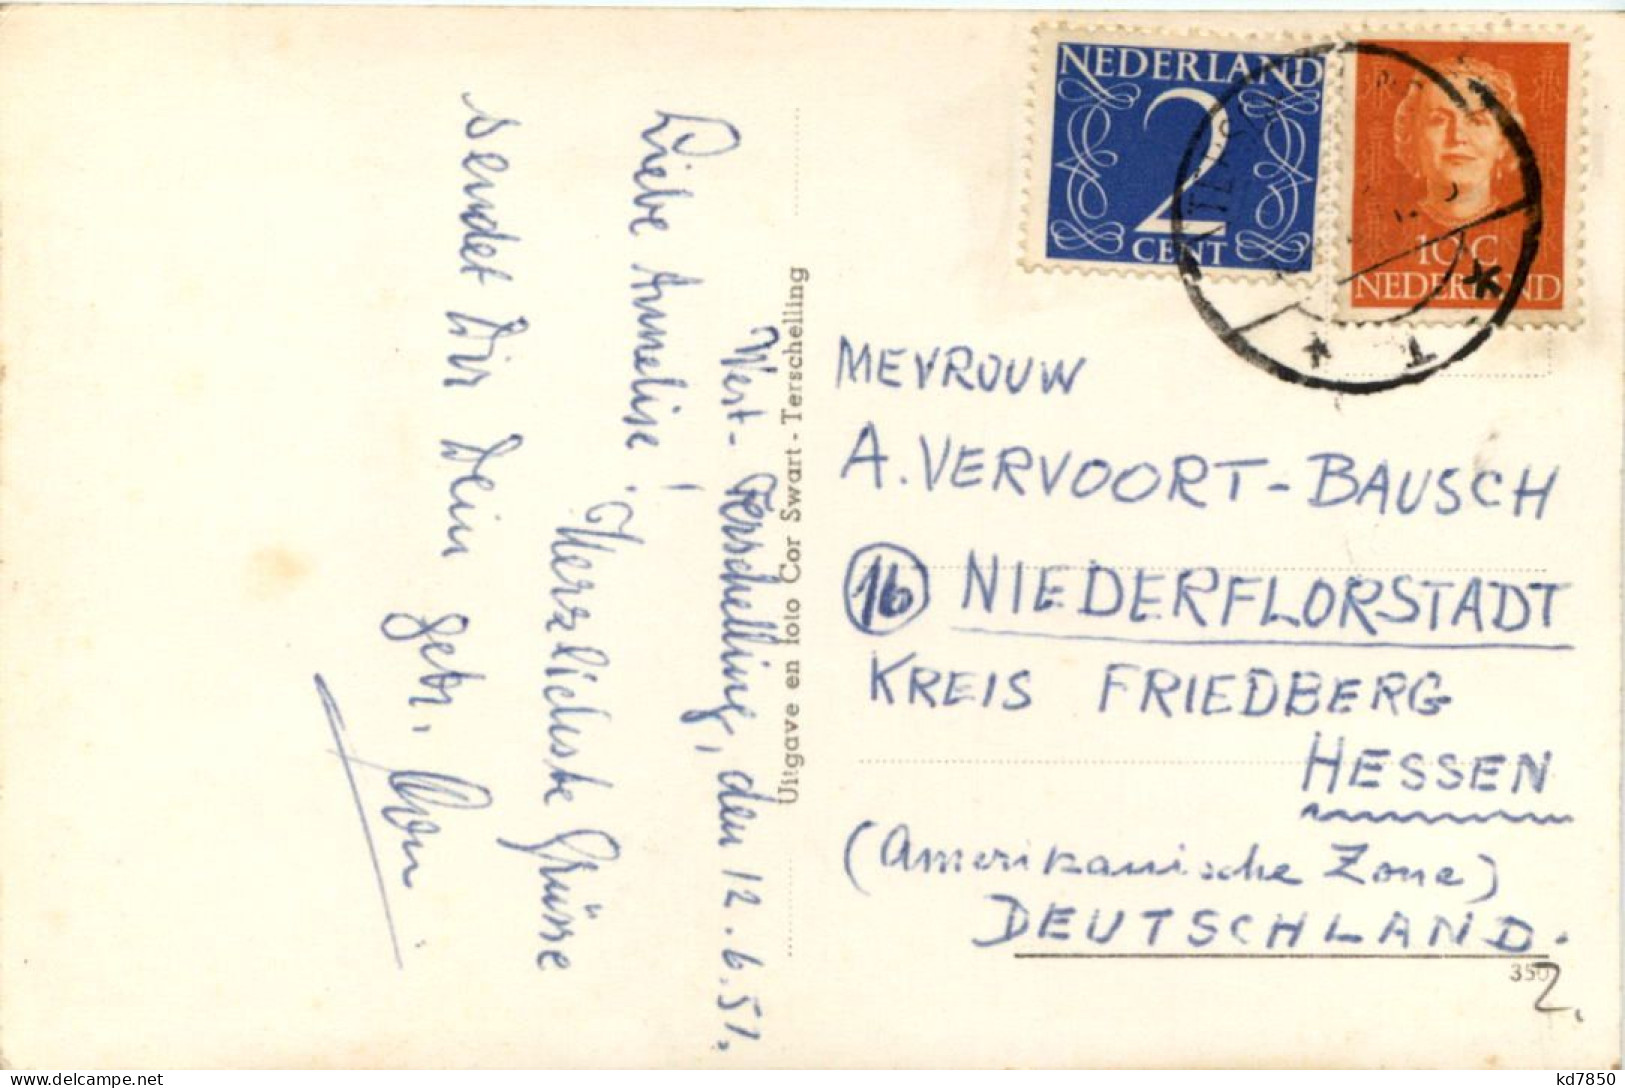 West-Terschelling, den 12.6.51.
Liebe Annelise!
Herzlichste Grüsse
sendet Dir Dein gebr.
Uitgave en foto Cor Swart - Terschelling
NEDERLAND
2
CENT
10 C
NEDERLAND
MEVROUW
A. VERVOORT-BAUSCH
16 NIEDERFLORSTADT
KREIS FRIEDBERG
HESSEN
(Amerikanische Zone)
DEUTSCHLAND.
350
2.
kd7850